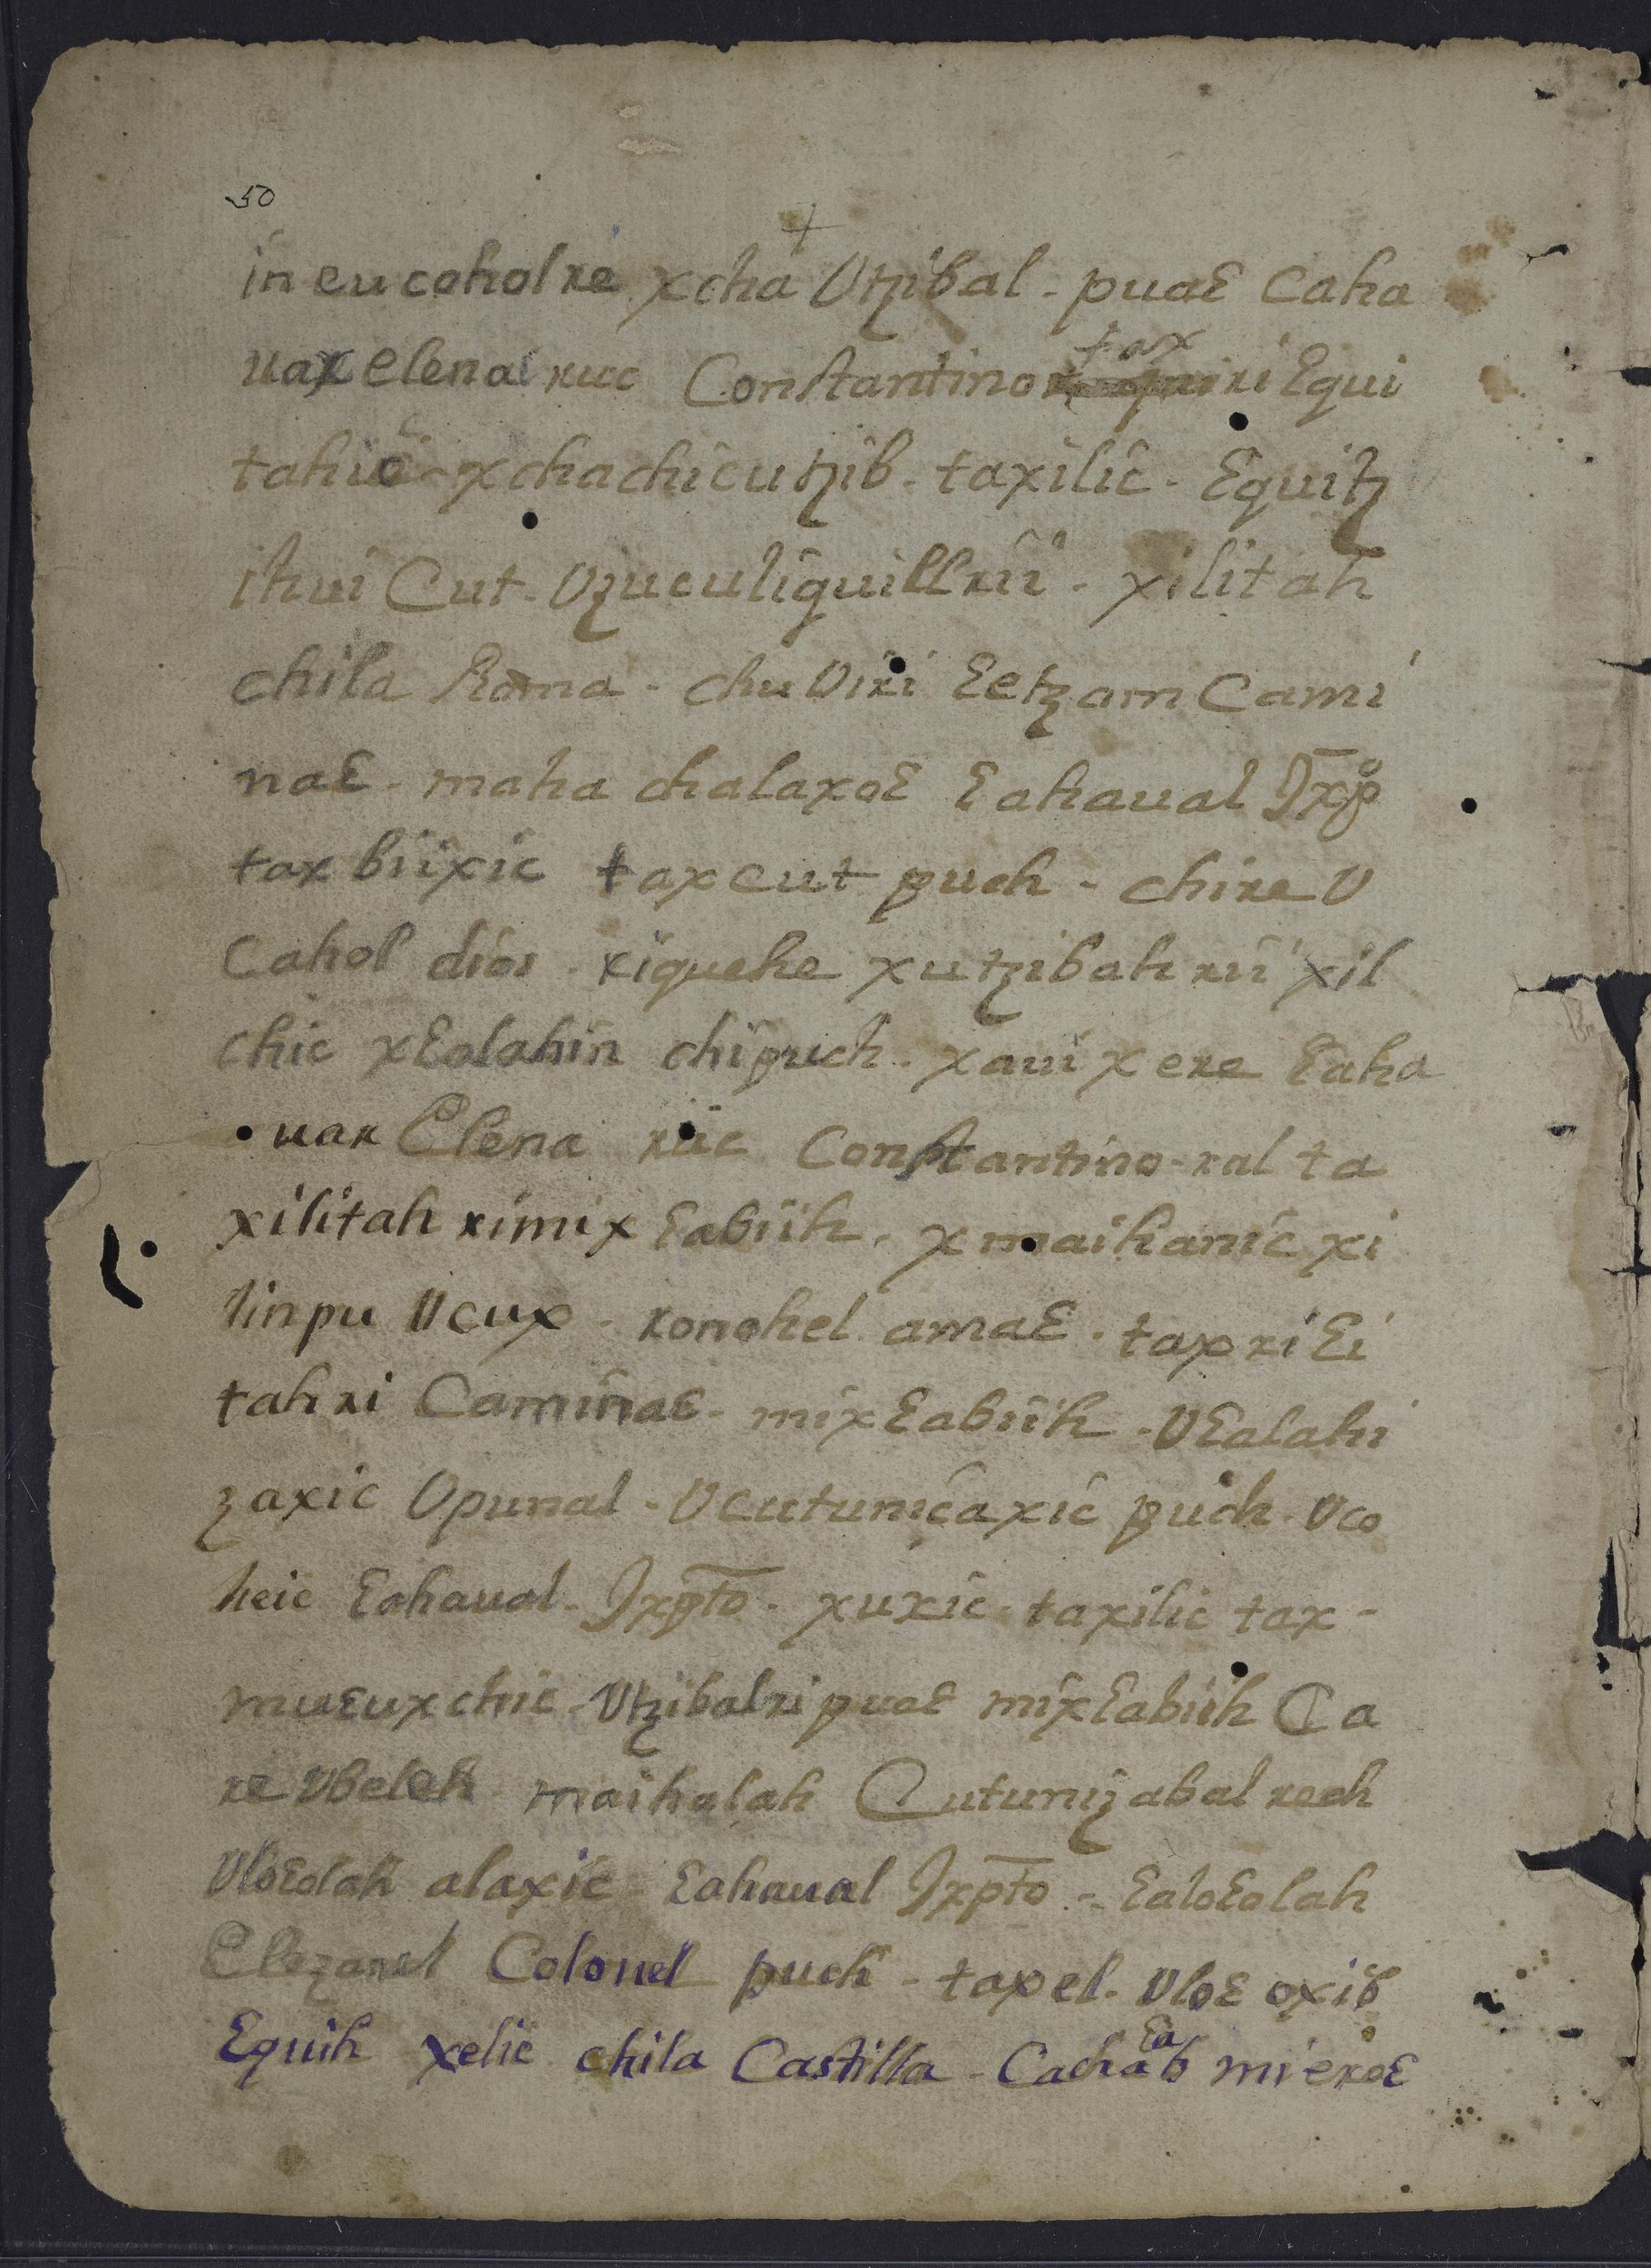 50
+
in cu cahol re xcha Vtzibal - puaɛ Caha
uax elena ruc Constantino tax quiri ɛqui
tahic - xcha chicutzib - taxilic - ɛquitz
ihui Cut - Vzuculiquill rii - xilitah
chila Roma - chu Viri ɛetzam Cami
naɛ - maha chalaxoɛ ɛahaual Jxpo
tax biixic tax cut puch - chire V
Cahol dios - riquehe xutzibah rii xil
chic xɛalahin chi puch - xaui xere ɛaha
uax Elena ruc Constantino - ral ta
xilitah rimix ɛabiih - xmaihanic xi
linpu Vcux - ronohel amaɛ - tax ri ɛi
tah ri Caminaɛ - mixɛabiih - Vɛalahi
zaxic Vpunal - Vcutuniçaxic puch - Vco
heic ɛahaual - Jxpto - xuxic - taxilic tax -
muɛux chic - Vtzibal ri puaɛ mixɛabiih Ca
re Vbeleh maihalah Cutunizabal rech
Vloɛolah alaxic - ɛahaual Jxpto - ɛaloɛolah
Elezanel Colonel puch - taxel - Vloɛ oxib
ɛquih xelic chila Castilla - Cachaɛab mieroɛ